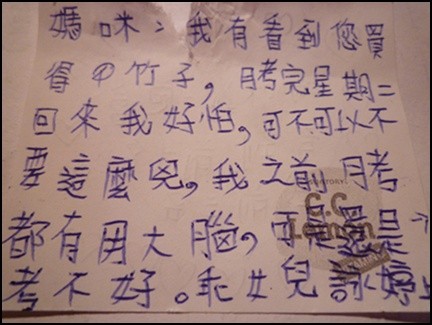 媽咪：我有看到您買
得甲竹子，月考完星期二
回來我好怕，可不可以不
要這麼兒，我之前月考
都有用大腦，可是還是
考不好。乖女兒 詠婷上
C.C.
Lemon